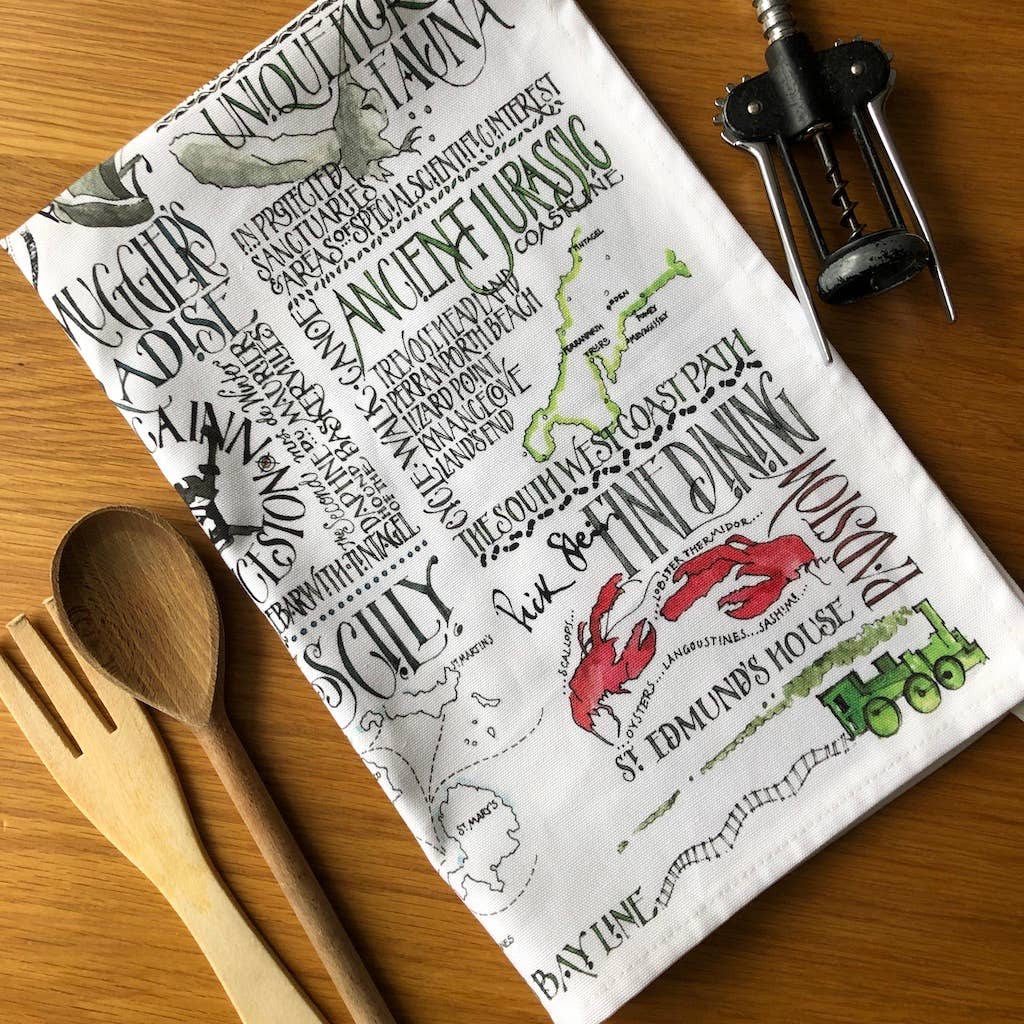 UNIQUE FLOR
FAUNA
IN PROTECTED
SANCTUARIES
& AREAS OF SPECIAL SCIENTIFIC INTEREST
ANCIENT JURASSIC
COASTLINE
WALK · CANOE
CYCLE
TREVOSE HEAD AND
PERRANPORTH BEACH
LIZARD POINT
KYNANCE COVE
LANDS END
TINTAGEL
FOWEY
MEVAGISSEY
TRURO
THE SOUTH WEST COAST PATH
MUGGLERS
ADISE
CA INN
CESSION
du Maurier
THE HOUND OF THE BASKERVILLES
TREBARWITH · TINTAGEL
SCILLY
ST. MARTIN'S
ST. MARY'S
FINE DINING
Rick Stein
PADSTOW
SCALLOPS...
...LOBSTER THERMIDOR...
...OYSTERS....LANGOUSTINES...SASHIMI...
ST. EDMUND'S HOUSE
BAY LINE